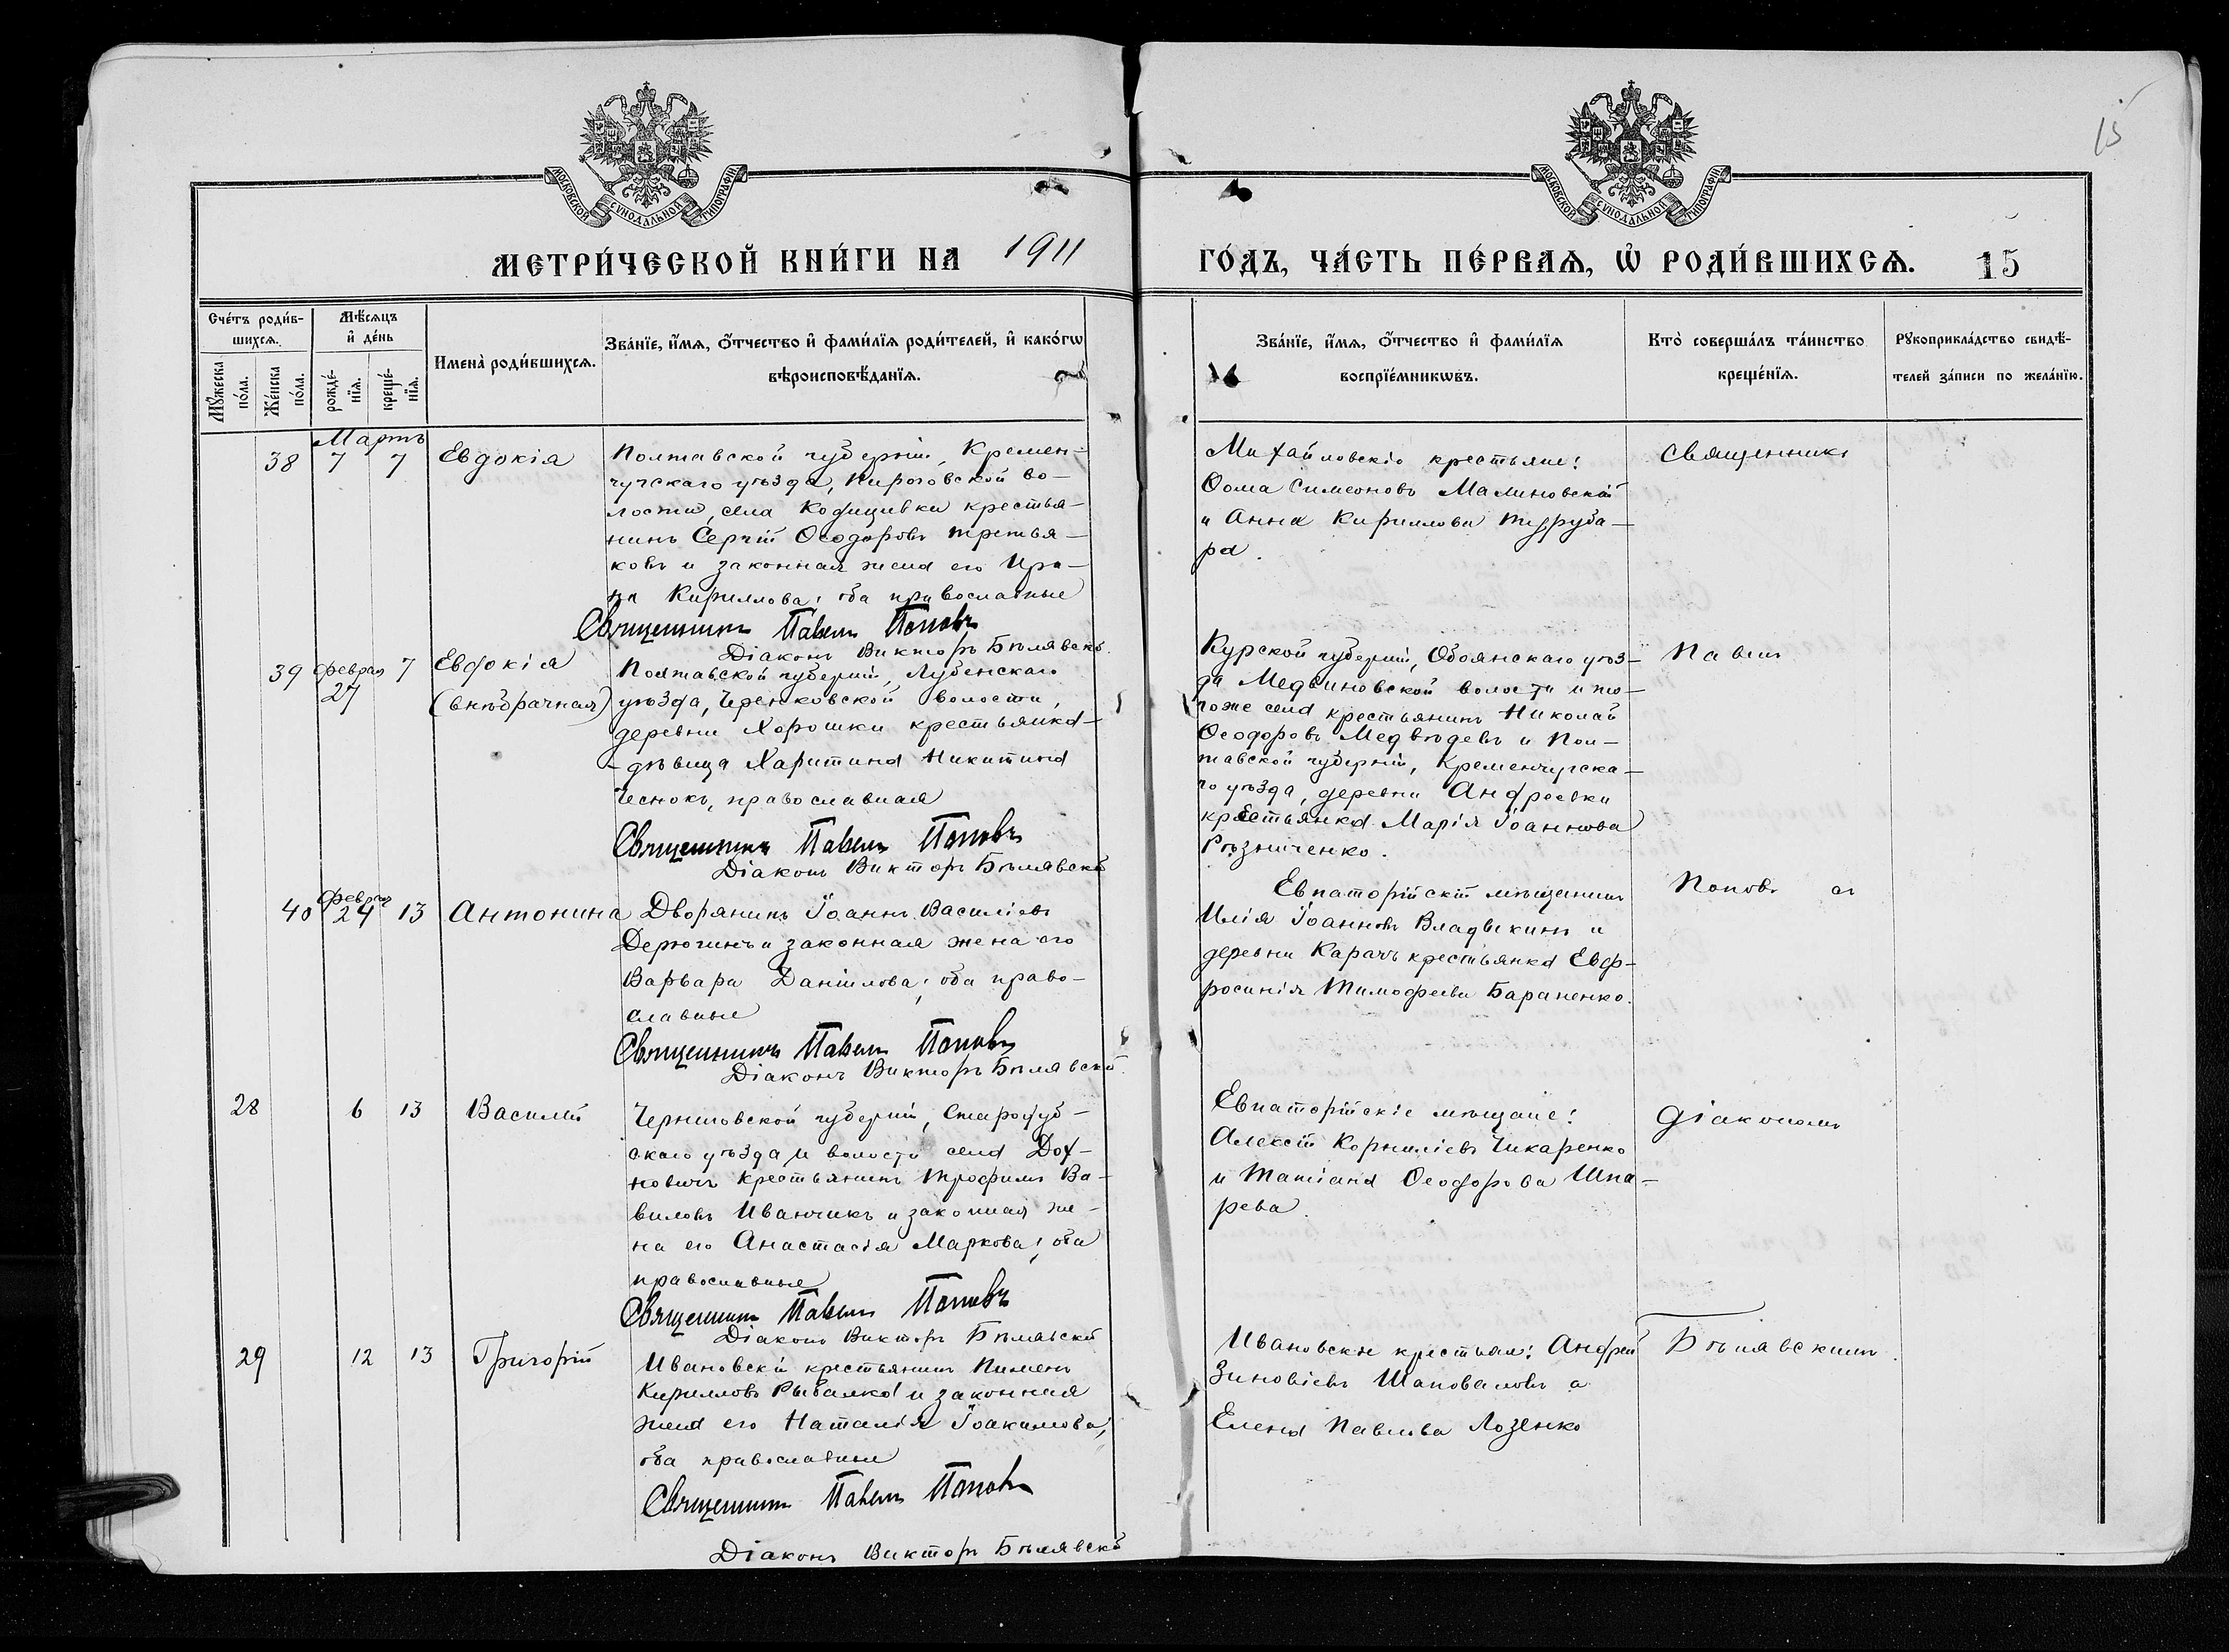 15
МОСКОВСКОЙ СУНОДАЛЬНОЙ ТИПОГРАФІИ
МОСКОВСКОЙ СУНОДАЛЬНОЙ ТИПОГРАФІИ
МЕТРИ́ЧЕСКОЙ КНИ́ГИ НА 1911
ГО́ДЪ, ЧА́СТЬ ПЕ́РВАѦ, Ѡ҆ РОДИ́ВШИХСѦ. 15
Сче́тъ роди́в-
шихсѧ.
Мꙋ́жеска по́ла.
Же́нска по́ла.
Мѣ́сѧцъ
и҆ де́нь
рожде́-
нїѧ.
креще́-
нїѧ.
И҆мена̀ роди́вшихсѧ.
Зва́нїе, и҆́мѧ, ѻ҆́тчество и҆ фами́лїѧ роди́телей, и҆ како́гѡ
вѣроисповѣ́данїѧ.
Зва́нїе, и҆́мѧ, ѻ҆́тчество и҆ фами́лїѧ
воспрїе́мникѡвъ.
Кто̀ соверша́лъ та́инство
креще́нїѧ.
Рꙋкоприкла́дство свидѣ́-
телей за́писи по жела́нїю.
Мартъ
38 7 7 Евдокія
Полтавской губерніи, Кремен-
чугскаго уѣзда, Пироговской во-
лости, села крестья-
нинъ Сергій Ѳеодоровъ Третья-
ковъ и законная жена его Ири-
на Кириллова; оба православные
Священникъ Павелъ Поповъ
Діаконъ Викторъ Бѣлявскій
Михайловскіе крестьяне:
Ѳома Симеоновъ Малиновскій
и Анна Кириллова Терруба-
ра.
Священникъ
39 Февраля 27 7 Евдокія
(внѣбрачная)
Полтавской губерніи, Лубенскаго
уѣзда, Черенковской волости,
деревни Хорошки крестьянка-
-дѣвица Харитина Никитина
Чеснокъ, православная
Священникъ Павелъ Поповъ
Діаконъ Викторъ Бѣлявскій
Курской губерніи, Обоянскаго уѣз-
да Медвиновской волости и то-
гоже села крестьянинъ Николай
Ѳеодоровъ Медвѣдевъ и Пол-
тавской губерніи, Кременчугска-
го уѣзда, деревни Андреевки
крестьянка Марія Іоаннова
Рѣзниченко.
Павелъ
40 Февраля 24 13 Антонина
Дворянинъ Іоаннъ Василіевъ
Дерюгинъ и законная жена его
Варвара Даніилова; оба право-
славные
Священникъ Павелъ Поповъ
Діаконъ Викторъ Бѣлявскій
Евпаторійскій мѣщанинъ
Илія Іоанновъ Владыкинъ и
деревни Карачъ крестьянка Евф-
росинія Тимофеева Бараненко.
Поповъ съ
28 6 13 Василій
Черниговской губерніи, Стародуб-
скаго уѣзда и волости села Дох-
новичъ крестьянинъ Трофимъ Ва-
виловъ Иванчикъ и законная же-
на его Анастасія Маркова; оба
православные
Священникъ Павелъ Поповъ
Діаконъ Викторъ Бѣлявскій
Евпаторійскіе мѣщане:
Алексій Корниліевъ Чикаренко
и Татіана Ѳеодорова Шпа-
рева.
діакономъ
29 12 13 Григорій
Ивановскій крестьянинъ Пименъ
Кирилловъ Рыбалко и законная
жена его Наталія Іоакимова;
оба православные
Священникъ Павелъ Поповъ
Діаконъ Викторъ Бѣлявскій
Ивановскіе крестьяне: Андрей
Зиновіевъ Шаповаловъ и
Елена Павлова Лозенко
Бѣлявскимъ.